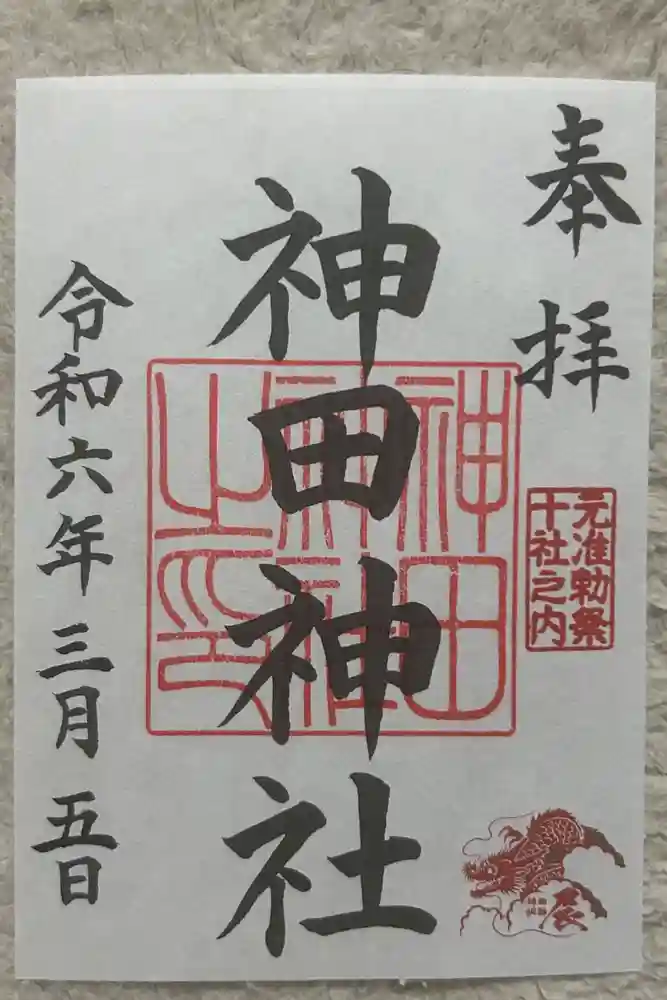 奉拝
元准勅祭
十社之内
神田神社
神田
神社
之印
辰
令和六年三月五日